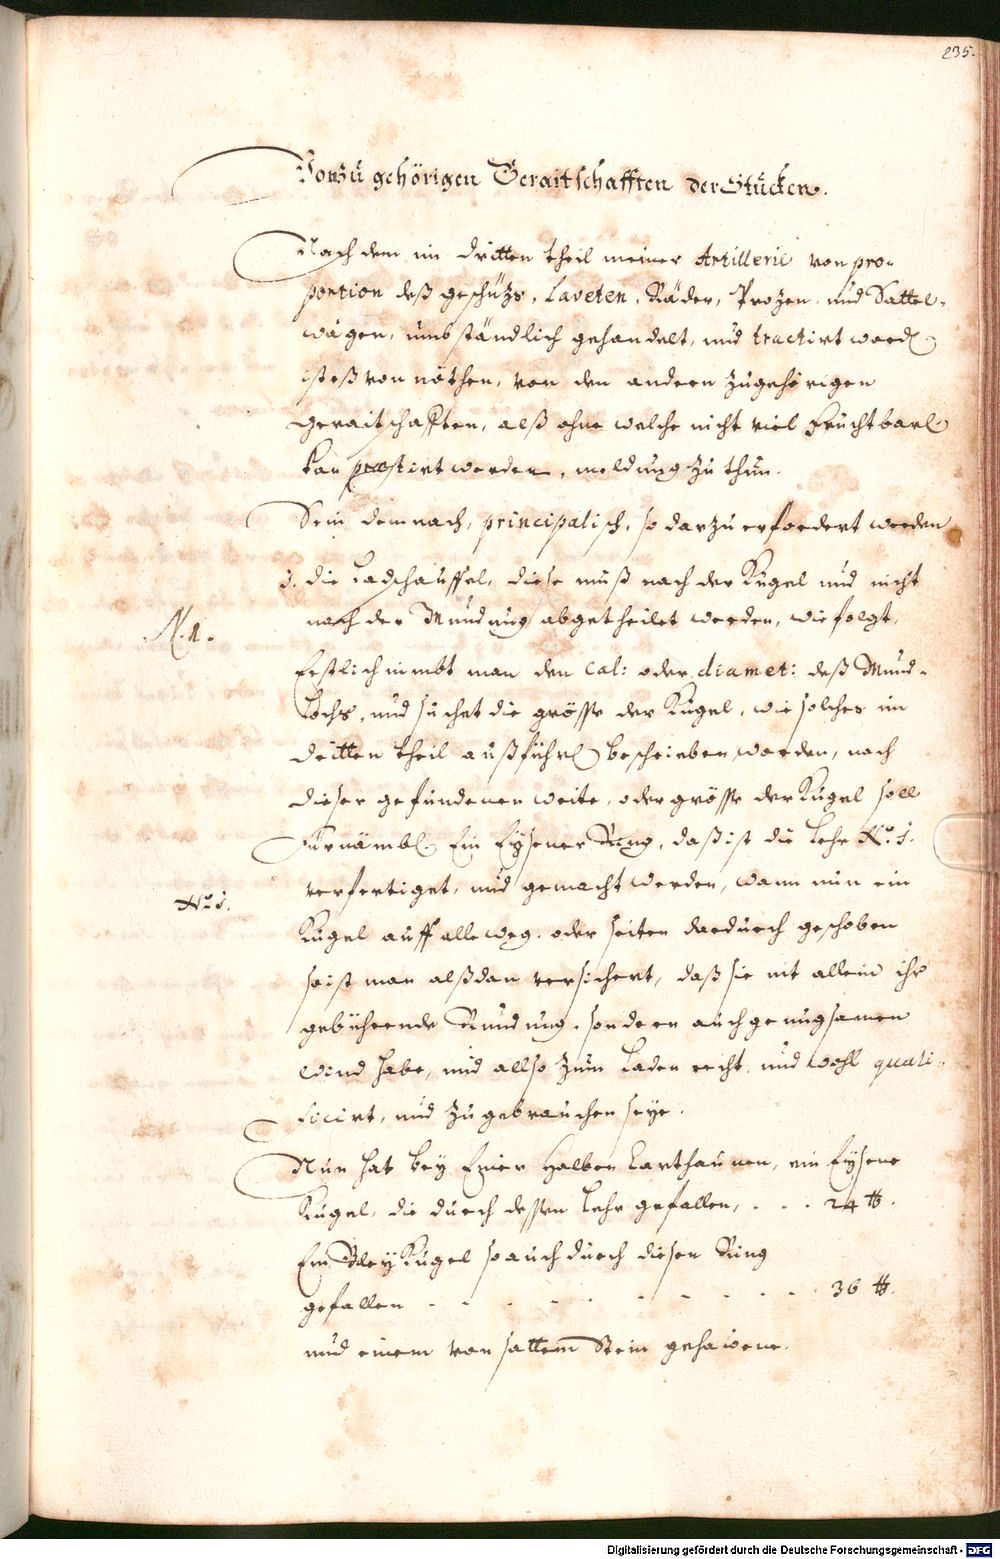 235.
Von Zu gehörigen Geraitschafften der Stücken.
Nach dem im dritten theil meiner Artillerie von pro-
portion deß geschützs, Laveten, Räder, Prozen, und Sattel-
wägen, umbständlich gehandelt, und tractirt word.
ist eß von nöthen, von den andern zugehörigen
geraitschafften, alß ohne welche nicht viel fruchtbarl.
kan præstirt werden, meldung zu thun.
Sein demnach, principalisch, so darzu erfordert werden
1. die Ladschauffel, diese muß nach der Kugel und nicht
nach der Mundung abgetheilet werden, wie folgt,
N. 1.
Erstlich nimbt man den Cal: oder diamet: deß Mund-
Lochs, und suchet die grösse der Kugel, wie solches im
dritten theil außführl. beschrieben worden, nach
dieser gefundenen weite, oder grösse der Kugel soll
fürnämbl. Ein Eysener Ring, daß ist die Lehr No. 1.
verfertiget, und gemacht werden, wann nun ein
No. 1.
Kugel auff alle weg. oder seiten dardurch geschoben
so ist man alßdan versichert, daß sie nit allein ihr
gebührende Rundung, sondern auch genugsamen
wind habe, und allso zum Laden recht, und wohl quali-
ficirt, und zu gebrauchen seye.
Nun hat bey Einer Halben Carthaunen, ein Eysene
Kugel, die durch dessen Lehr gefallen, . . . 24 ℔.
Ein Bley Kugel so auch durch diesen Ring
gefallen - - - - - - - - - - 36 ℔.
und einem von sattem Stein gehawene.
Digitalisierung gefördert durch die Deutsche Forschungsgemeinschaft - DFG